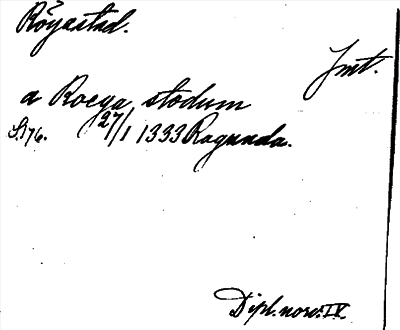 Röjestad.
Jmt.
a Roega stodum
S. 176. 27/1 1333 Ragunda.
Dipl. norv. IX.